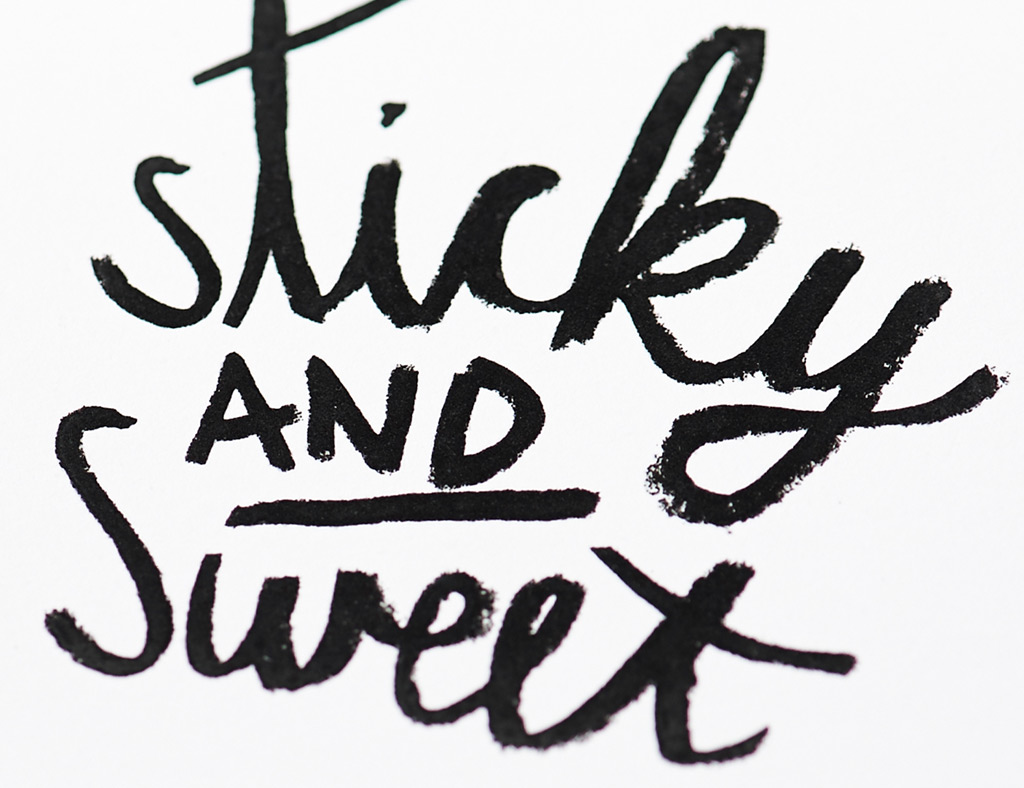 sticky
AND
Sweet